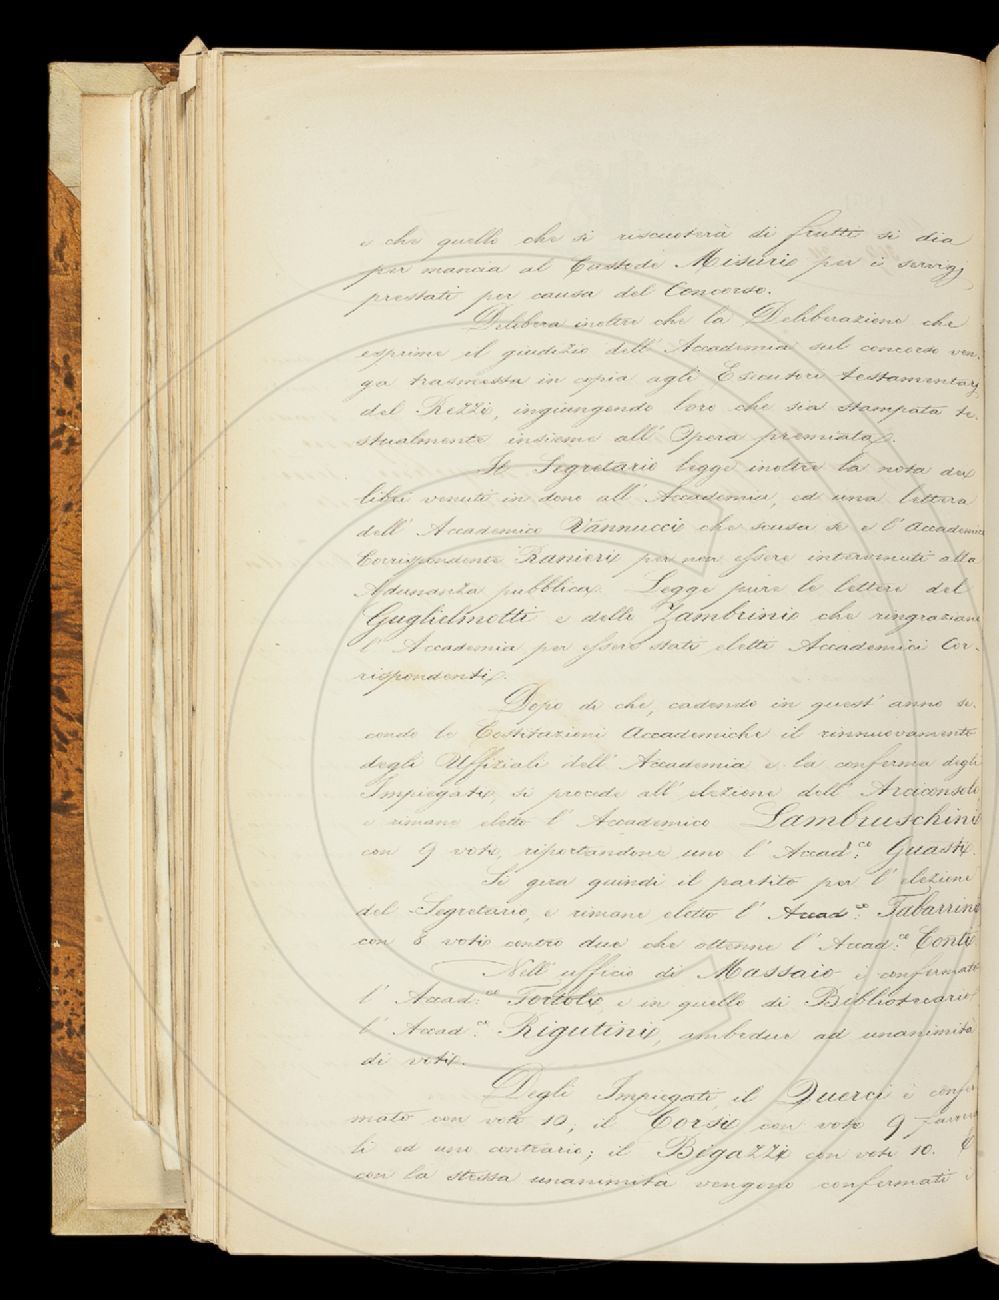 e che quello che si riscuoterà di frutti si dia
per mancia al Custode Misuri per i servigj
prestati per causa del Concorso.
Delibera inoltre che la Deliberazione che
esprime il giudizio dell' Accademia sul concorso ven-
ga trasmessa in copia agli Esecutori testamentarj
del Rezzi, ingiungendo loro che sia stampata te-
stualmente insieme all' Opera premiata.
Il Segretario legge inoltre la nota dei
libri venuti in dono all' Accademia, ed una lettera
dell' Accademico Vannucci che scusa se e l' Accademico
Corrispondente Ranieri per non essere intervenuti alla
Adunanza pubblica. Legge pure le lettere del
Guglielmotti e dello Zambrini che ringraziano
l' Accademia per essere stati eletti Accademici Cor-
rispondenti.
Dopo di che, cadendo in quest' anno se-
condo le Costituzioni Accademiche il rinnuovamento
degli Uffiziali dell' Accademia e la conferma degli
Impiegati, si procede all' elezione dell' Arciconsolo,
e rimane eletto l' Accademico Lambruschini
con 9 voti, riportandone uno l' Accad.co Guasti.
Si gira quindi il partito per l' elezione
del Segretario, e rimane eletto l' Accad.co Tabarrini
con 8 voti contro due che ottenne l' Accad.co Conti.
Nell' ufficio di Massaio è confermato
l' Accad.co Tortoli, e in quello di Bibliotecario
l' Accad.co Rigutini, ambedue ad unanimità
di voti.
Degli Impiegati, il Querci è confer-
mato con voti 10; il Corsi con voti 9 favorevo-
li ed uno contrario; il Bigazzi con voti 10. E
con la stessa unanimità vengono confermati i